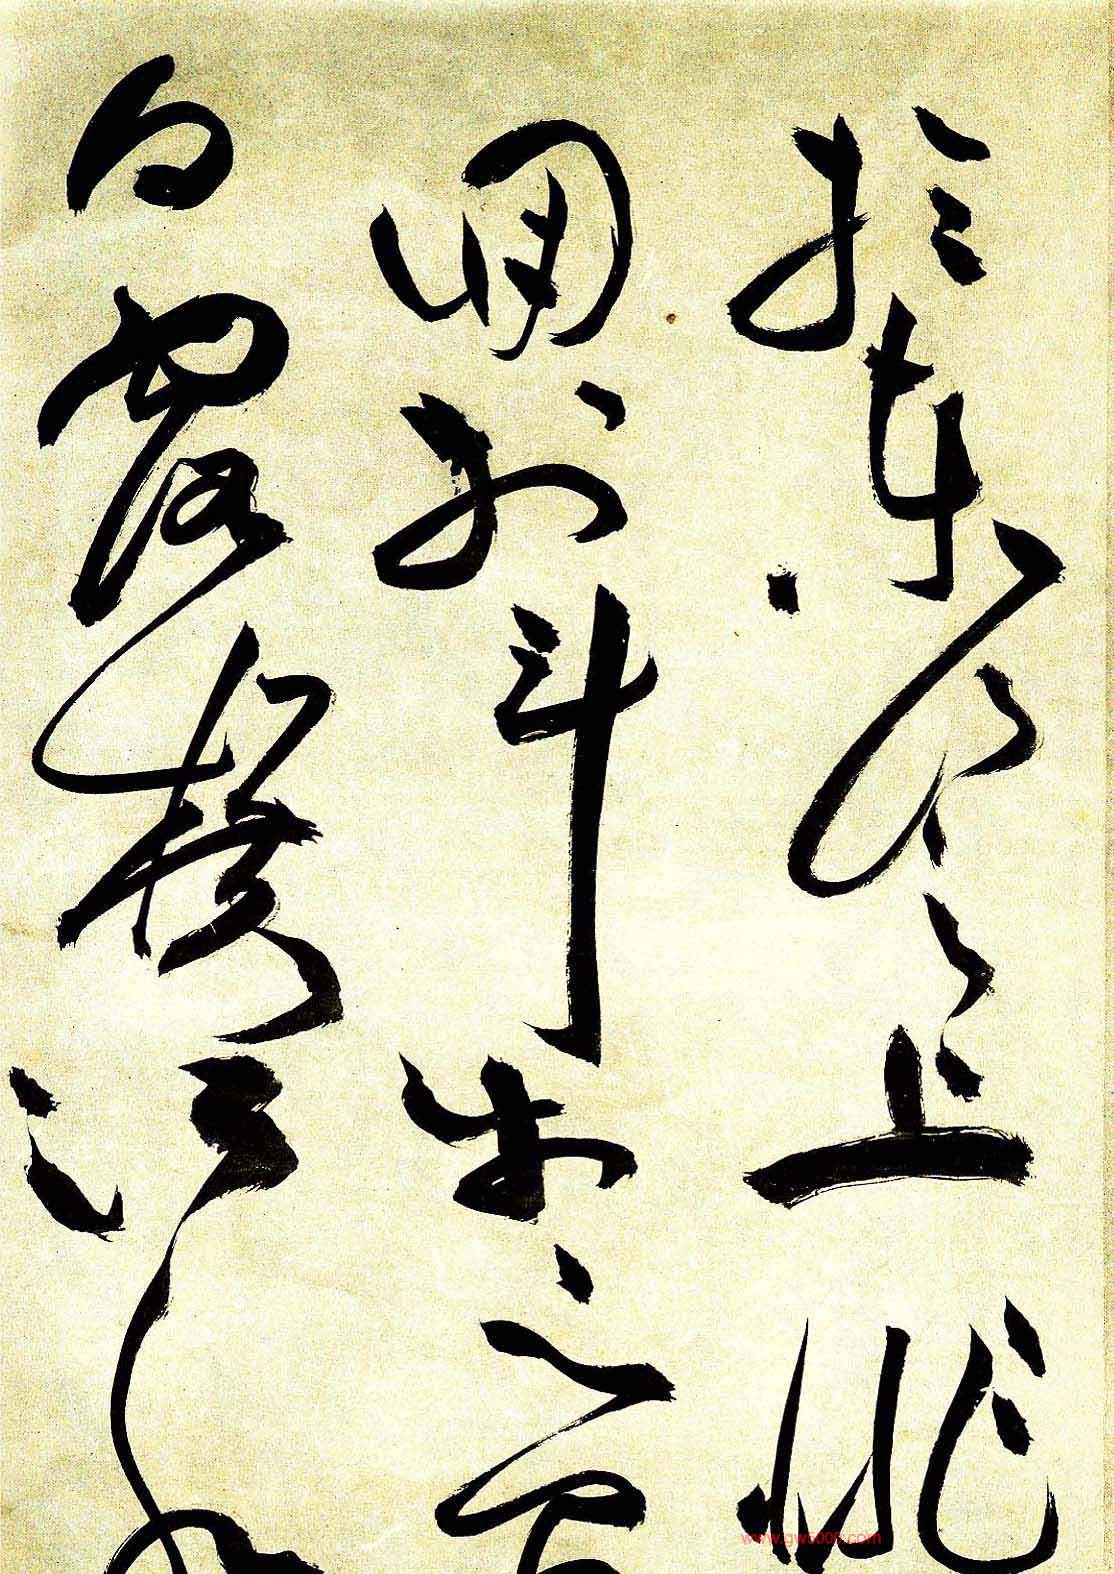 於東山之上徘
徊於斗牛之間
白露橫江水
www.gw5000.com